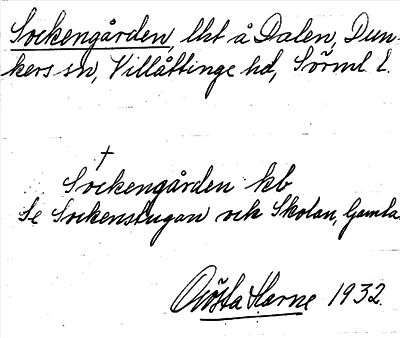 Sockengården, lht å Dalen, Dun-
kers sn, Villåttinge hd, Sörml. l.
†
Sockengården kb
Se Sockenstugan och Skolan, Gamla
Gösta Harne 1932.